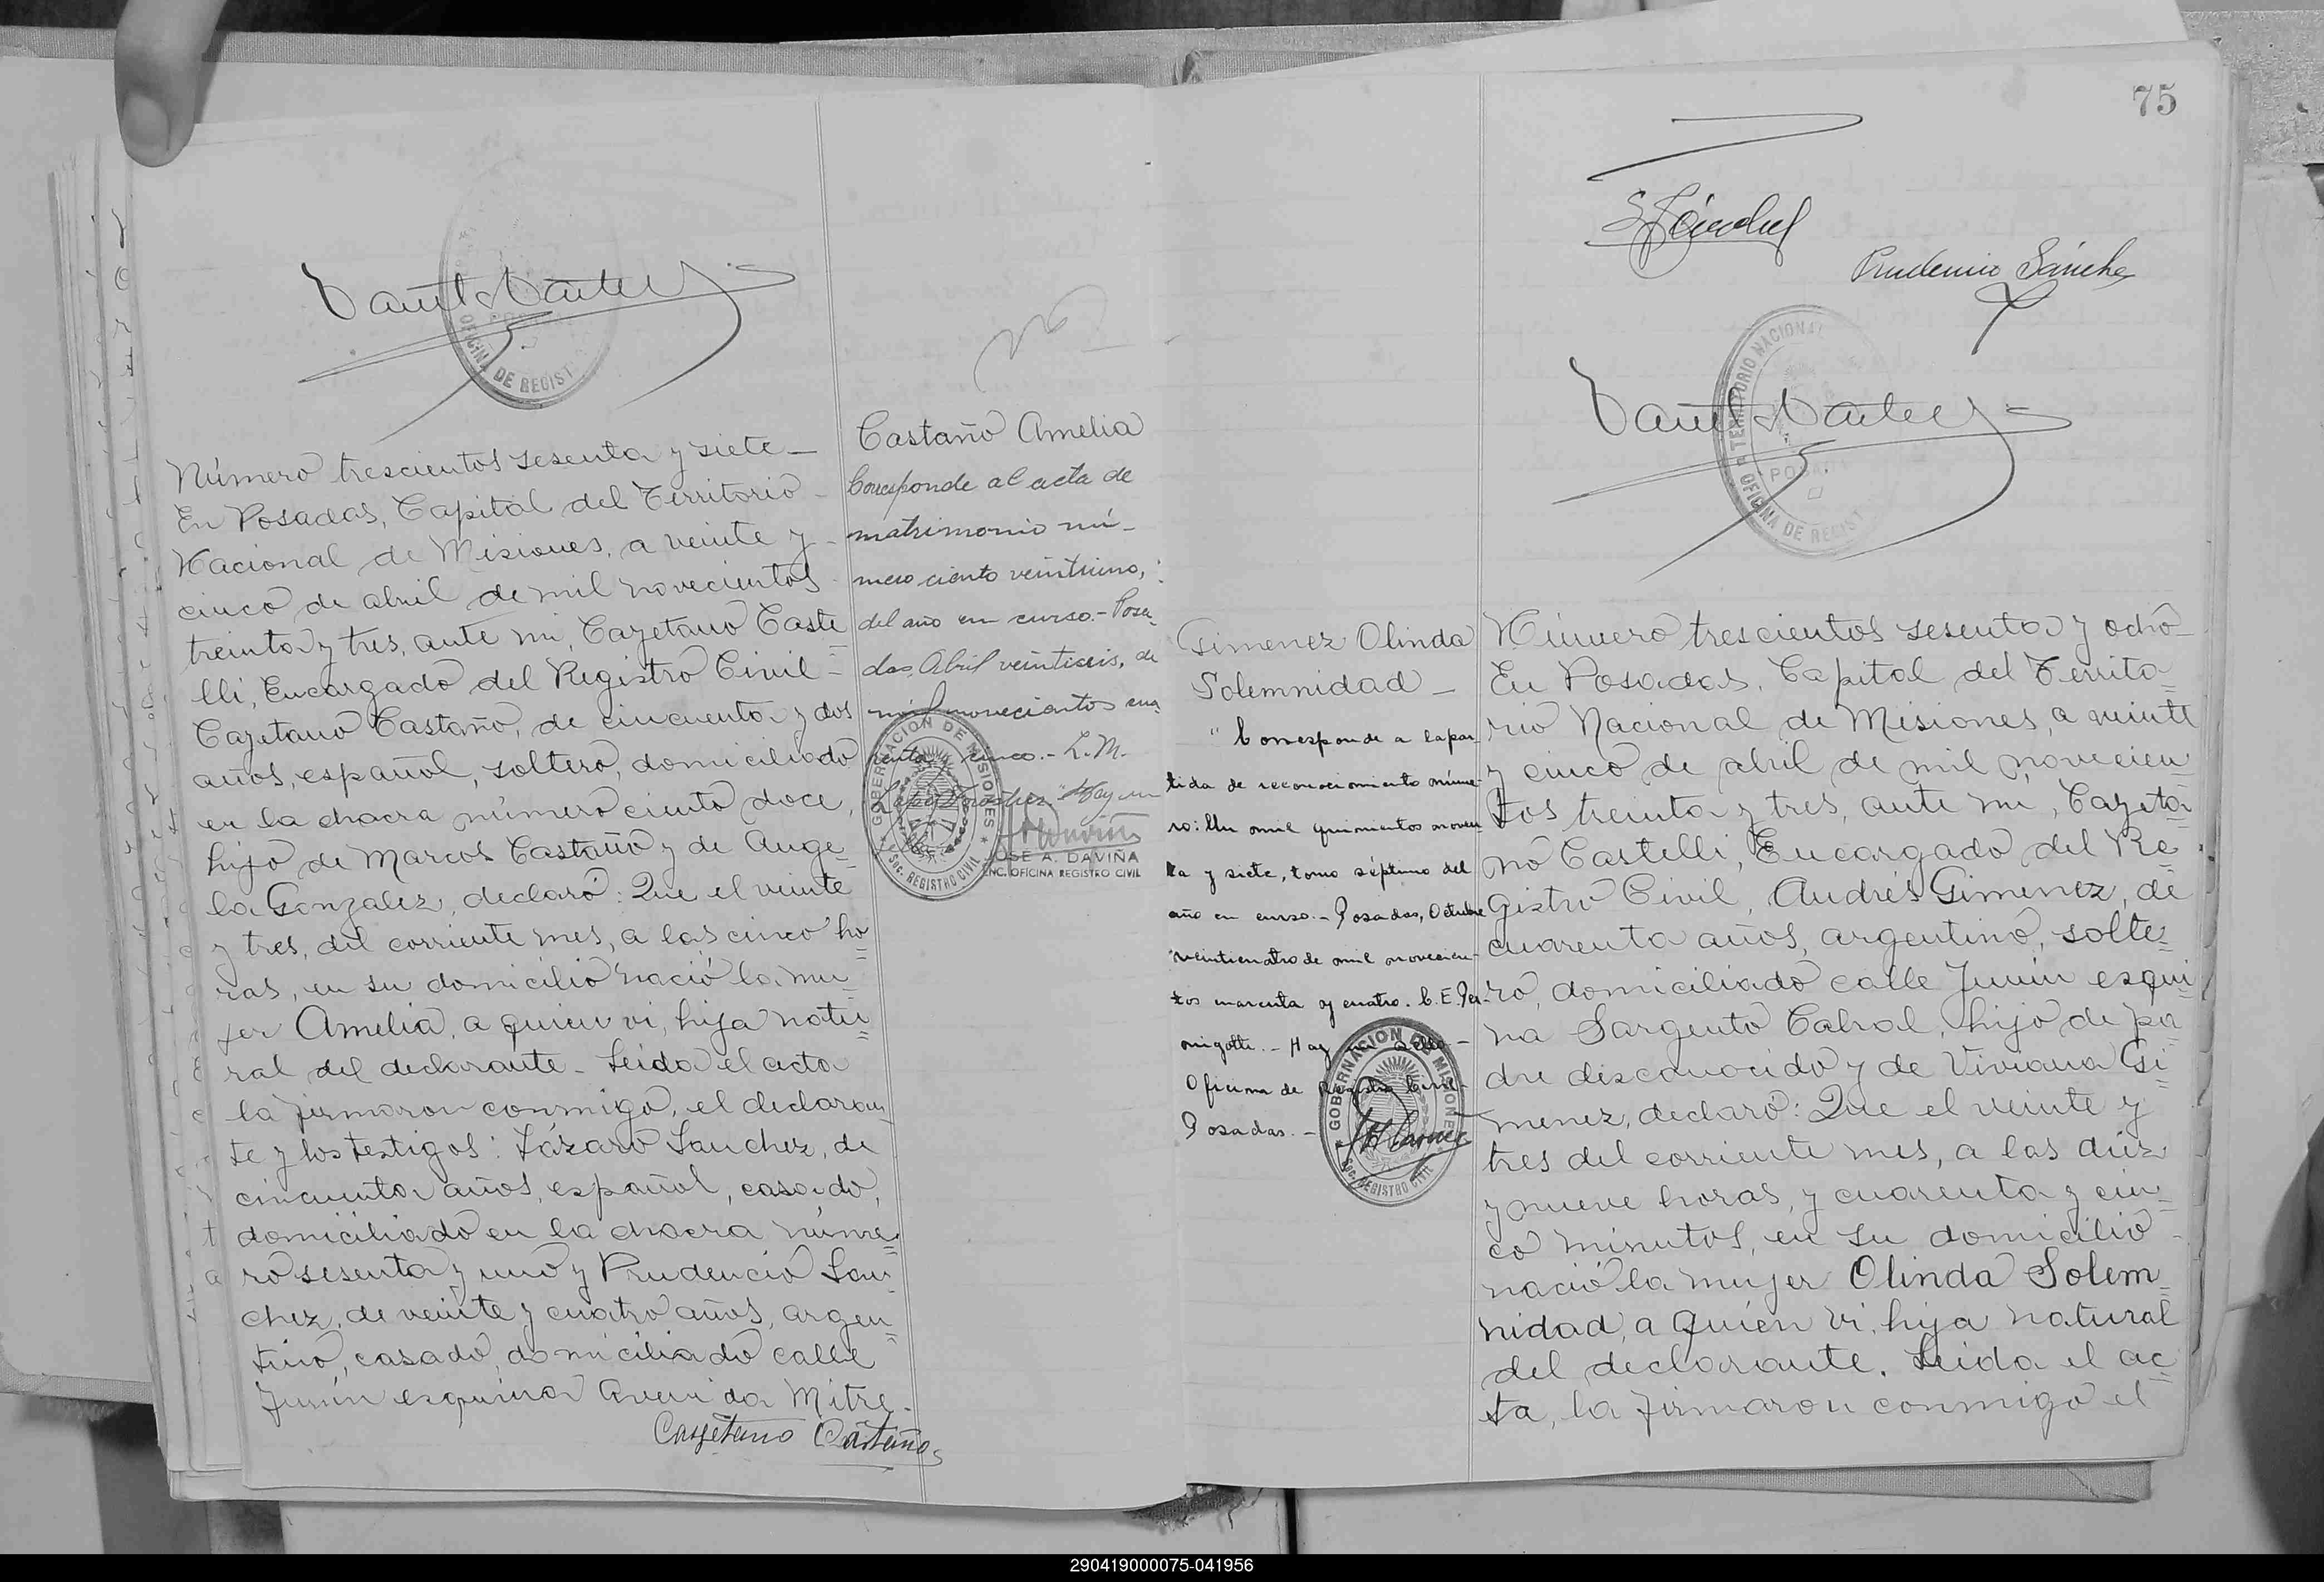 Número trescientos sesenta y siete_
En Posadas, Capital del Territorio
Nacional de Misiones, a veinte y
cinco de abril de mil novecientos
treinta y tres, ante mi, Cayetano Caste=
lli, Encargado del Registro Civil
Cayetano Castaño, de cincuenta y dos
años, español, soltero, domiciliado
en la chacra número ciento doce,
hijo de Marcos Castaño y de Ange=
la Gonzalez, declaró: Que el veinte
y tres, del corriente mes, a las cinco ho=
ras, en su domicilio nació la mu=
jer Amelia, a quien vi, hija natu=
ral del declarante. Leida el acta
la firmaron conmigo, el declaran=
te y los testigos: Lázaro Sanchez, de
cincuenta años, español, casado,
domiciliado en la chacra núme=
ro sesenta y uno y Prudencio San=
chez, de veinte y cuatro años, argen=
tino, casado, domiciliado calle
Junín esquina Avenida Mitre.
Cayetano Castaño
OFICINA DE REGIST
Castaño Amelia
Corresponde al acta de
matrimonio nú-
mero ciento veintiuno,
del año en curso.- Posa-
das, Abril veintiseis, de
mil novecientos cua-
renta y cinco.- L.M.
Hay un
GOBERNACION DE MISIONES
Sec. REGISTRO CIVIL
JOSE A. DAVIÑA
ENC. OFICINA REGISTRO CIVIL
75
Prudencio Sánchez
TERRITORIO NACIONAL
OFICINA DE REGIST
Gimenez Olinda
Solemnidad_
"Corresponde a la par-
tida de reconocimiento núme-
ro: Un mil quinientos noven
ta y siete, tomo séptimo del
año en curso.- Posadas, Octubre
veinticuatro de mil novecien-
tos cuarenta y cuatro. C.E.Per-
nigotti.- Hay un sello-
Oficina de Registro Civil-
Posadas.-
GOBERNACION DE MISIONES
Sec. REGISTRO CIVIL
Número trescientos sesenta y ocho_
En Posadas, Capital del Territo=
rio Nacional de Misiones, a veinte
y cinco de abril de mil novecien=
tos treinta y tres, ante mi, Cayeta=
no Castelli, Encargado del Re=
gistro Civil, Andrés Gimenez, de
cuarenta años, argentino, solte=
ro, domiciliado calle Junin esqui=
na Sargento Cabral, hijo de pa=
dre desconocido y de Viviana Gi=
menez, declaró: Que el veinte y
tres del corriente mes, a las diez
y nueve horas, y cuarenta y cin=
co minutos, en su domicilio
nació la mujer Olinda Solem=
nidad, a quien vi, hija natural
del declarante. Leida el ac=
ta, la firmaron conmigo el
290419000075-041956